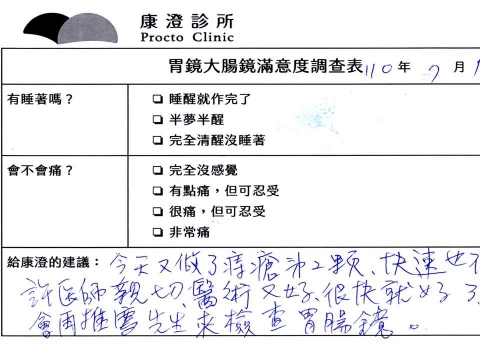 康澄診所
Procto Clinic
胃鏡大腸鏡滿意度調查表 110年 7月
有睡著嗎？
❏ 睡醒就作完了
❏ 半夢半醒
❏ 完全清醒沒睡著
會不會痛？
❏ 完全沒感覺
❏ 有點痛，但可忍受
❏ 很痛，但可忍受
❏ 非常痛
給康澄的建議：今天又做了痔瘡第2顆、快速也不
許医師親切、醫術又好、很快就好了
會再推薦先生來檢查胃腸鏡。